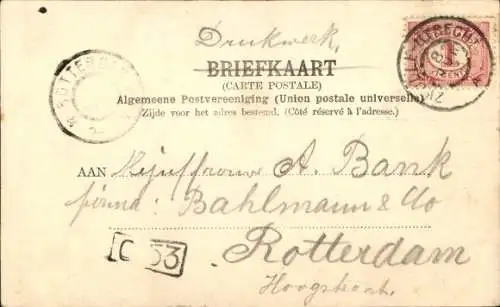 Drukwerk,
BRIEFKAART
(CARTE POSTALE)
Algemeene Postvereeniging (Union postale universelle)
Zijde voor het adres bestemd. (Côté réservé à l'adresse.)
UTRECHT
1
CENT
ROTTERDAM
AAN Mejuffrouw A. Bank
firma: Bahlmann & Co
Rotterdam
Hoogstraat.
C 53